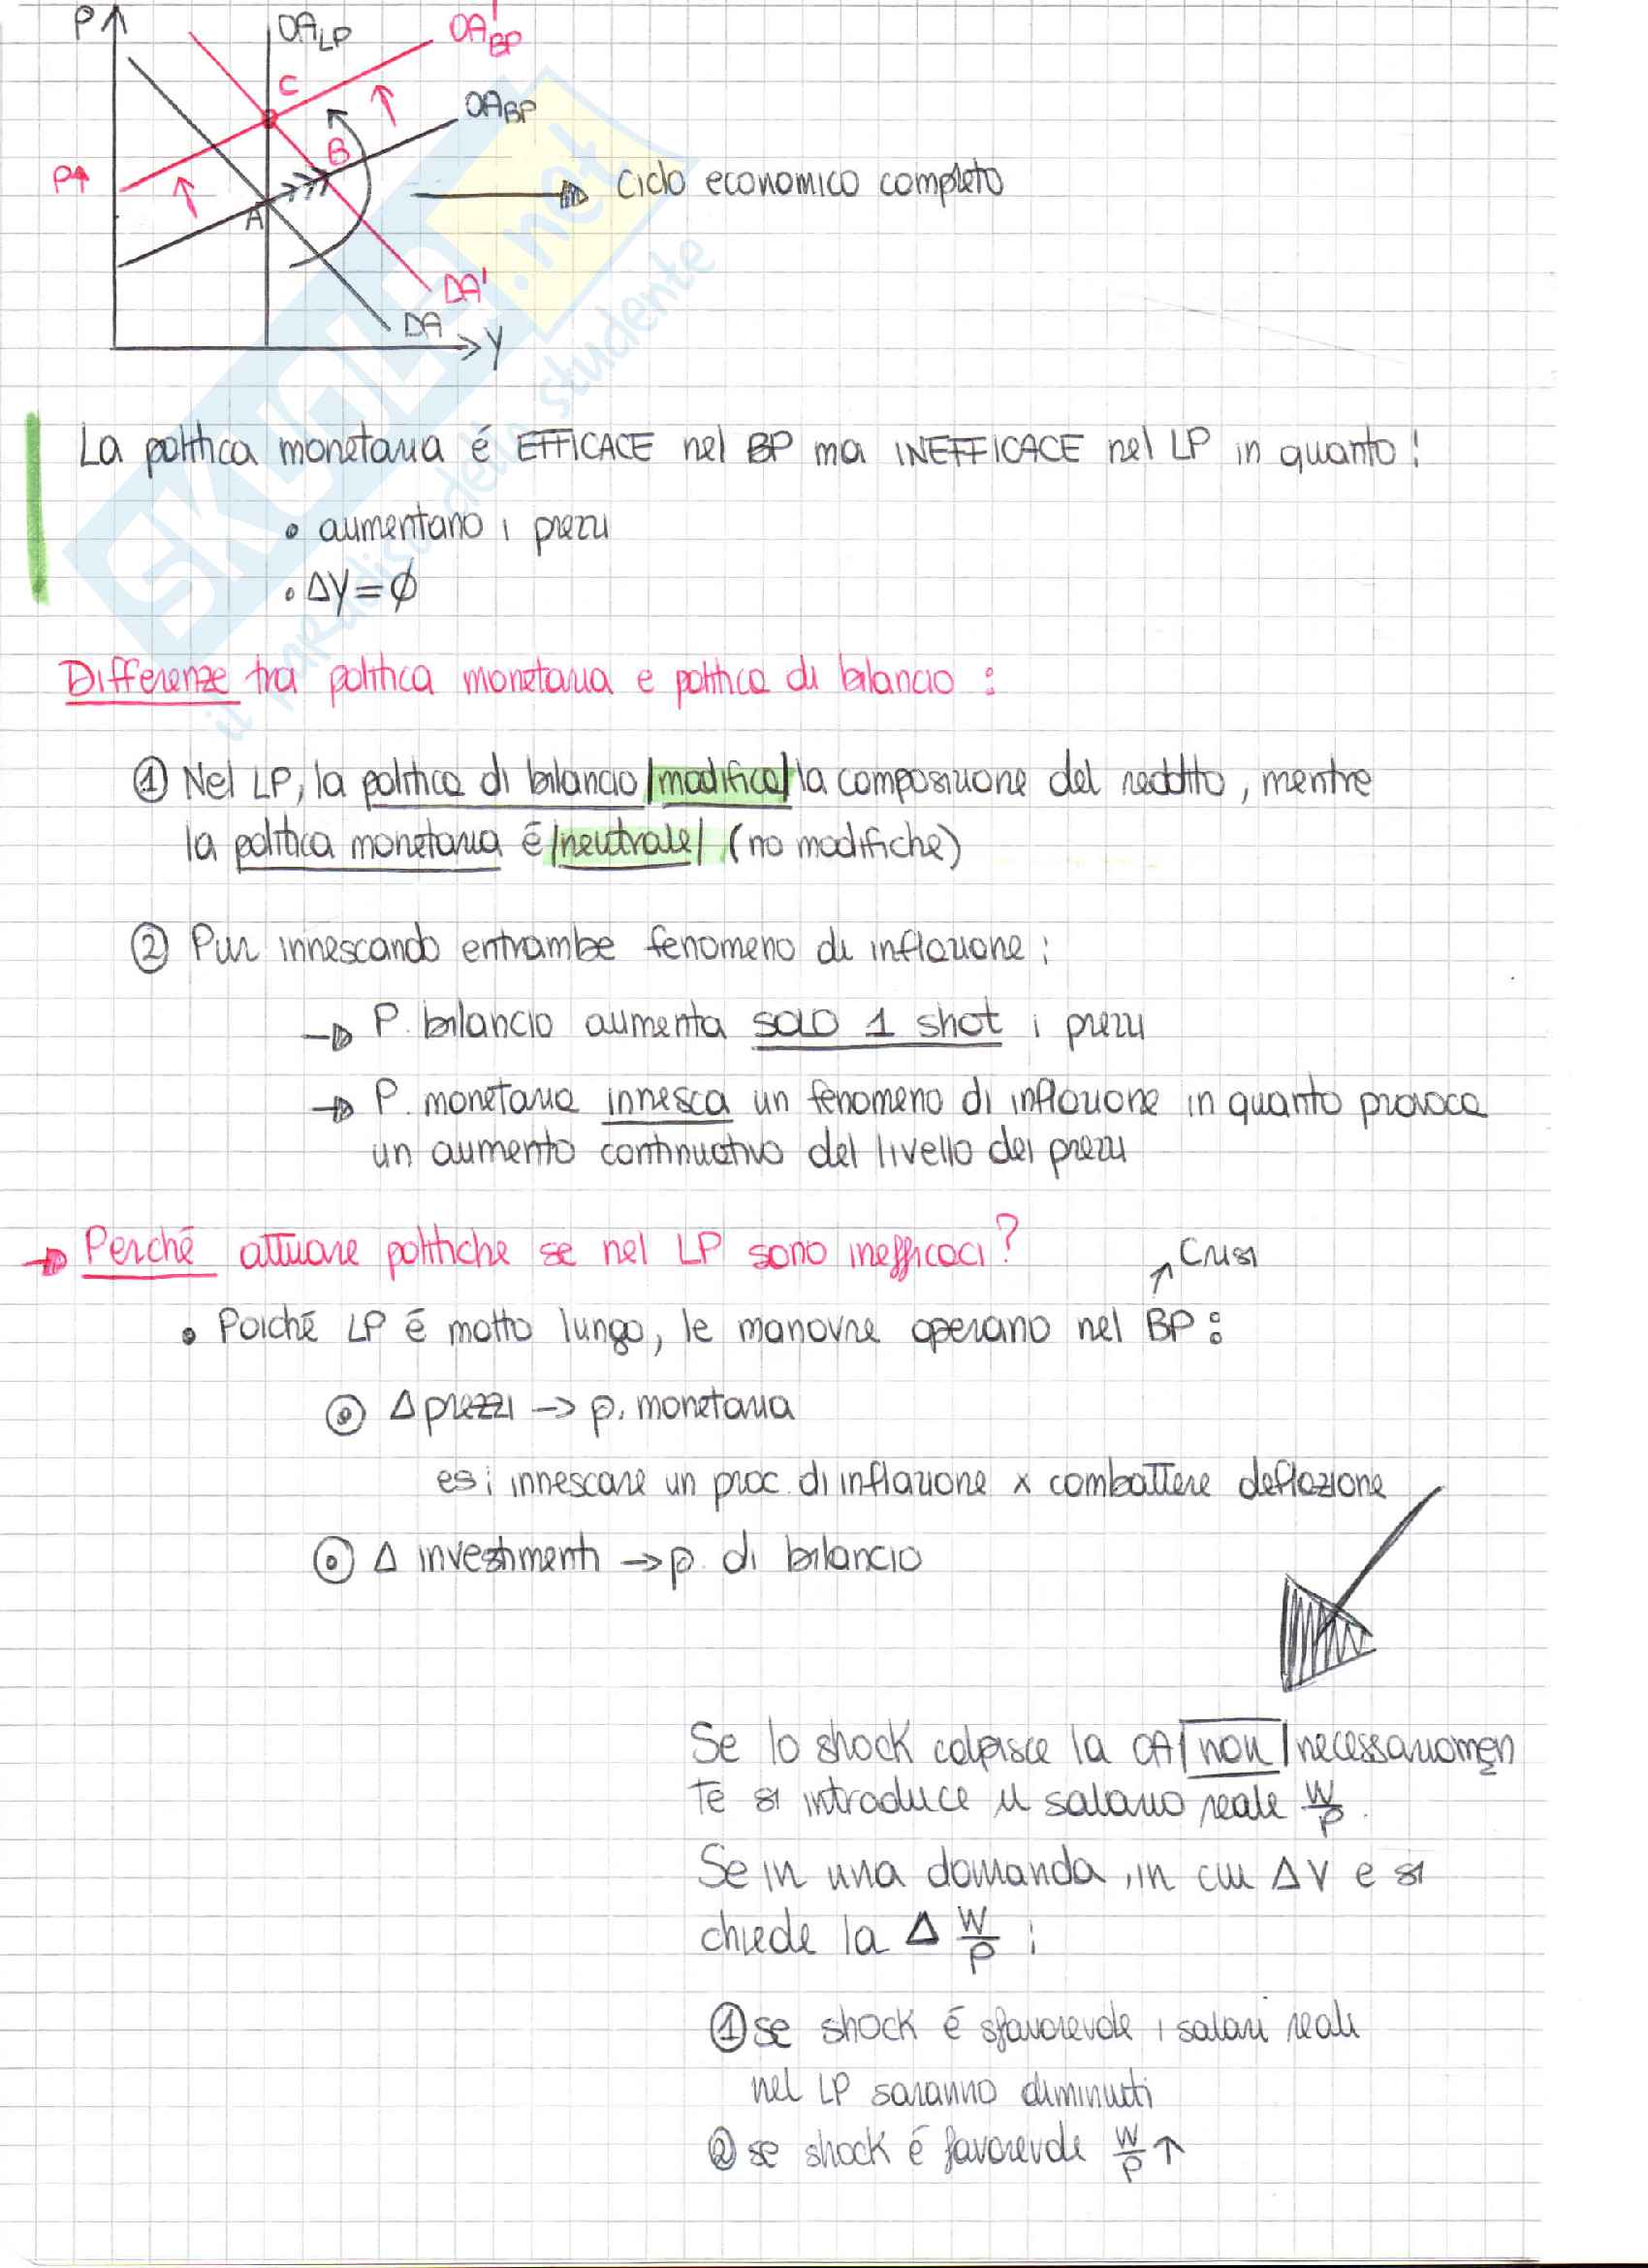 P
OA_LP
OA'_BP
C
OA_BP
B
P↑
Ciclo economico completo
A
DA'
DA
Y
SKUOLA.net
il paradiso dello studente
La politica monetaria é EFFICACE nel BP ma INEFFICACE nel LP in quanto:
• aumentano i prezzi
• ΔY = ø
Differenze tra politica monetaria e politica di bilancio:
① Nel LP, la politica di bilancio /modifica/ la composizione del reddito, mentre
la politica monetaria é /neutrale/ (no modifiche)
② Pur innescando entrambe fenomeno di inflazione:
→ P. bilancio aumenta solo 1 shot i prezzi
→ P. monetaria innesca un fenomeno di inflazione in quanto provoca
un aumento continuativo del livello dei prezzi
→ Perché attuare politiche se nel LP sono inefficaci?
↑ Crisi
• Poiché LP é molto lungo, le manovre operano nel BP:
⊙ Δ prezzi → p. monetaria
es: innescare un proc. di inflazione x combattere deflazione
⊙ Δ investimenti → p. di bilancio
Se lo shock colpisce la OA /non/ necessariamen
te si introduce il salario reale W/P.
Se in una domanda, in cui ΔY e si
chiede la Δ W/P:
① se shock é sfavorevole i salari reali
nel LP saranno diminuiti
② se shock é favorevole W/P ↑